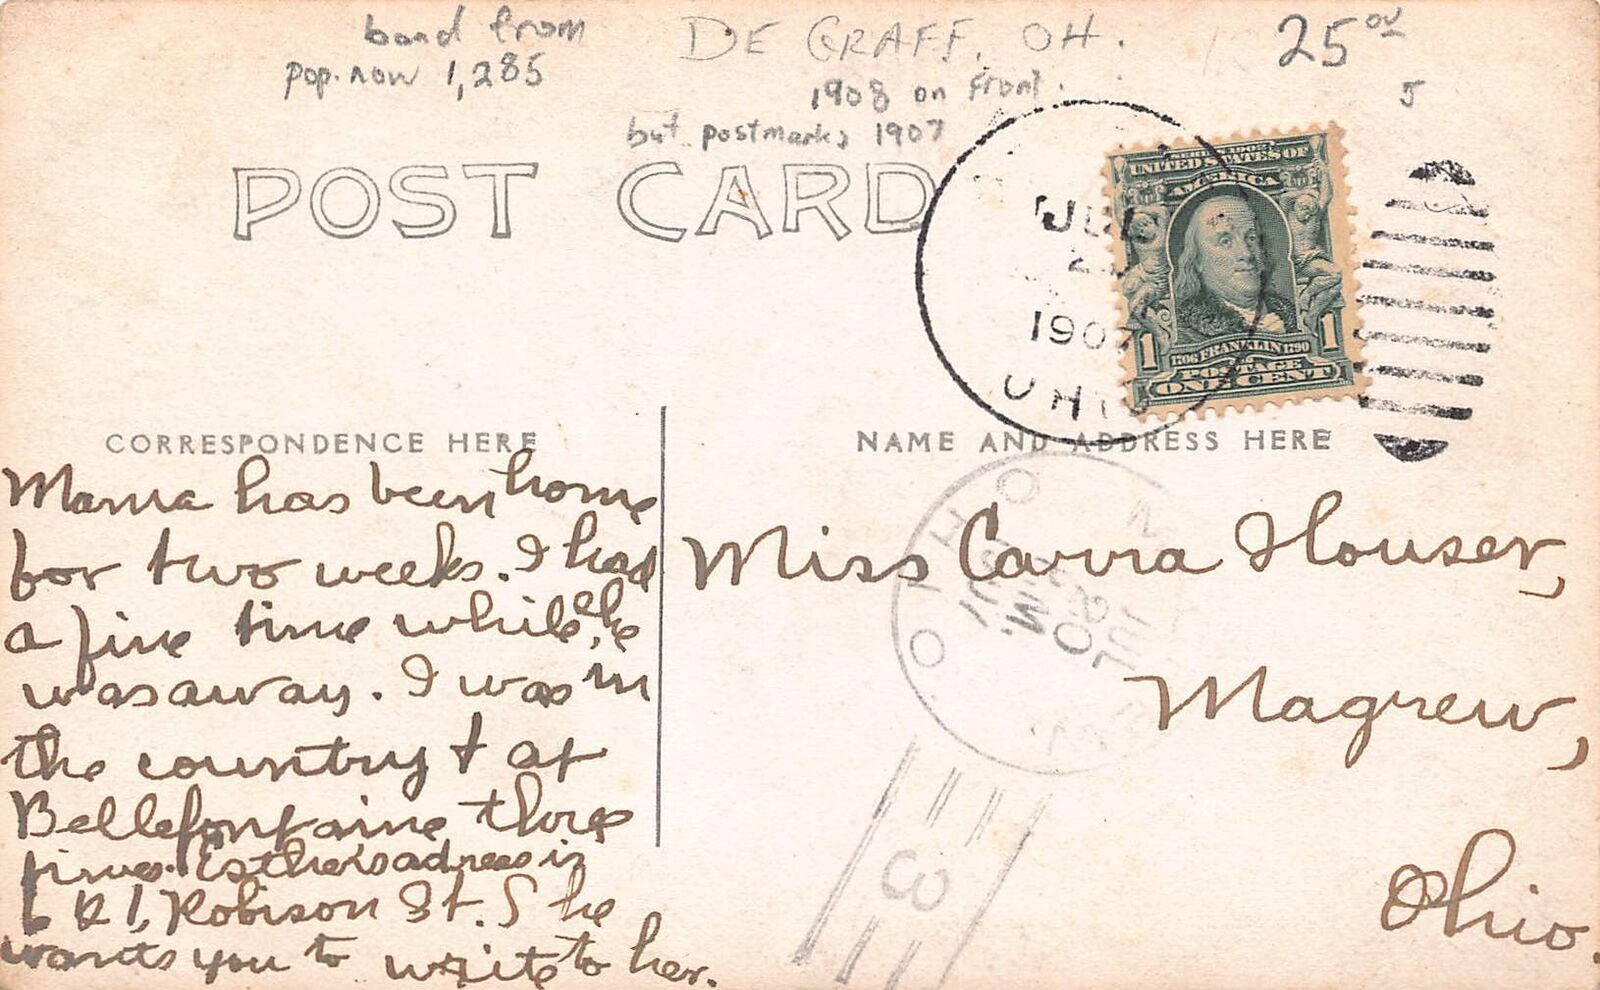 band from
DE GRAFF, OH.
25 00
pop. now 1,285
1908 on front.
5
but postmarks 1907
POST CARD
SERIES 1902
UNITED STATES OF
AMERICA
JUL
1907
OHIO
1 1
1706 FRANKLIN 1790
POSTAGE
ONE CENT
CORRESPONDENCE HERE
NAME AND ADDRESS HERE
Mama has been home
for two weeks. I had
a fine time while she
was away. I was in
the country & at
Bellefontaine three
times. Esther's adress is
R 1, Robison St. She
wants you to write to her.
Miss Carra Houser,
Magrew,
Ohio.
OHIO
JUL
3